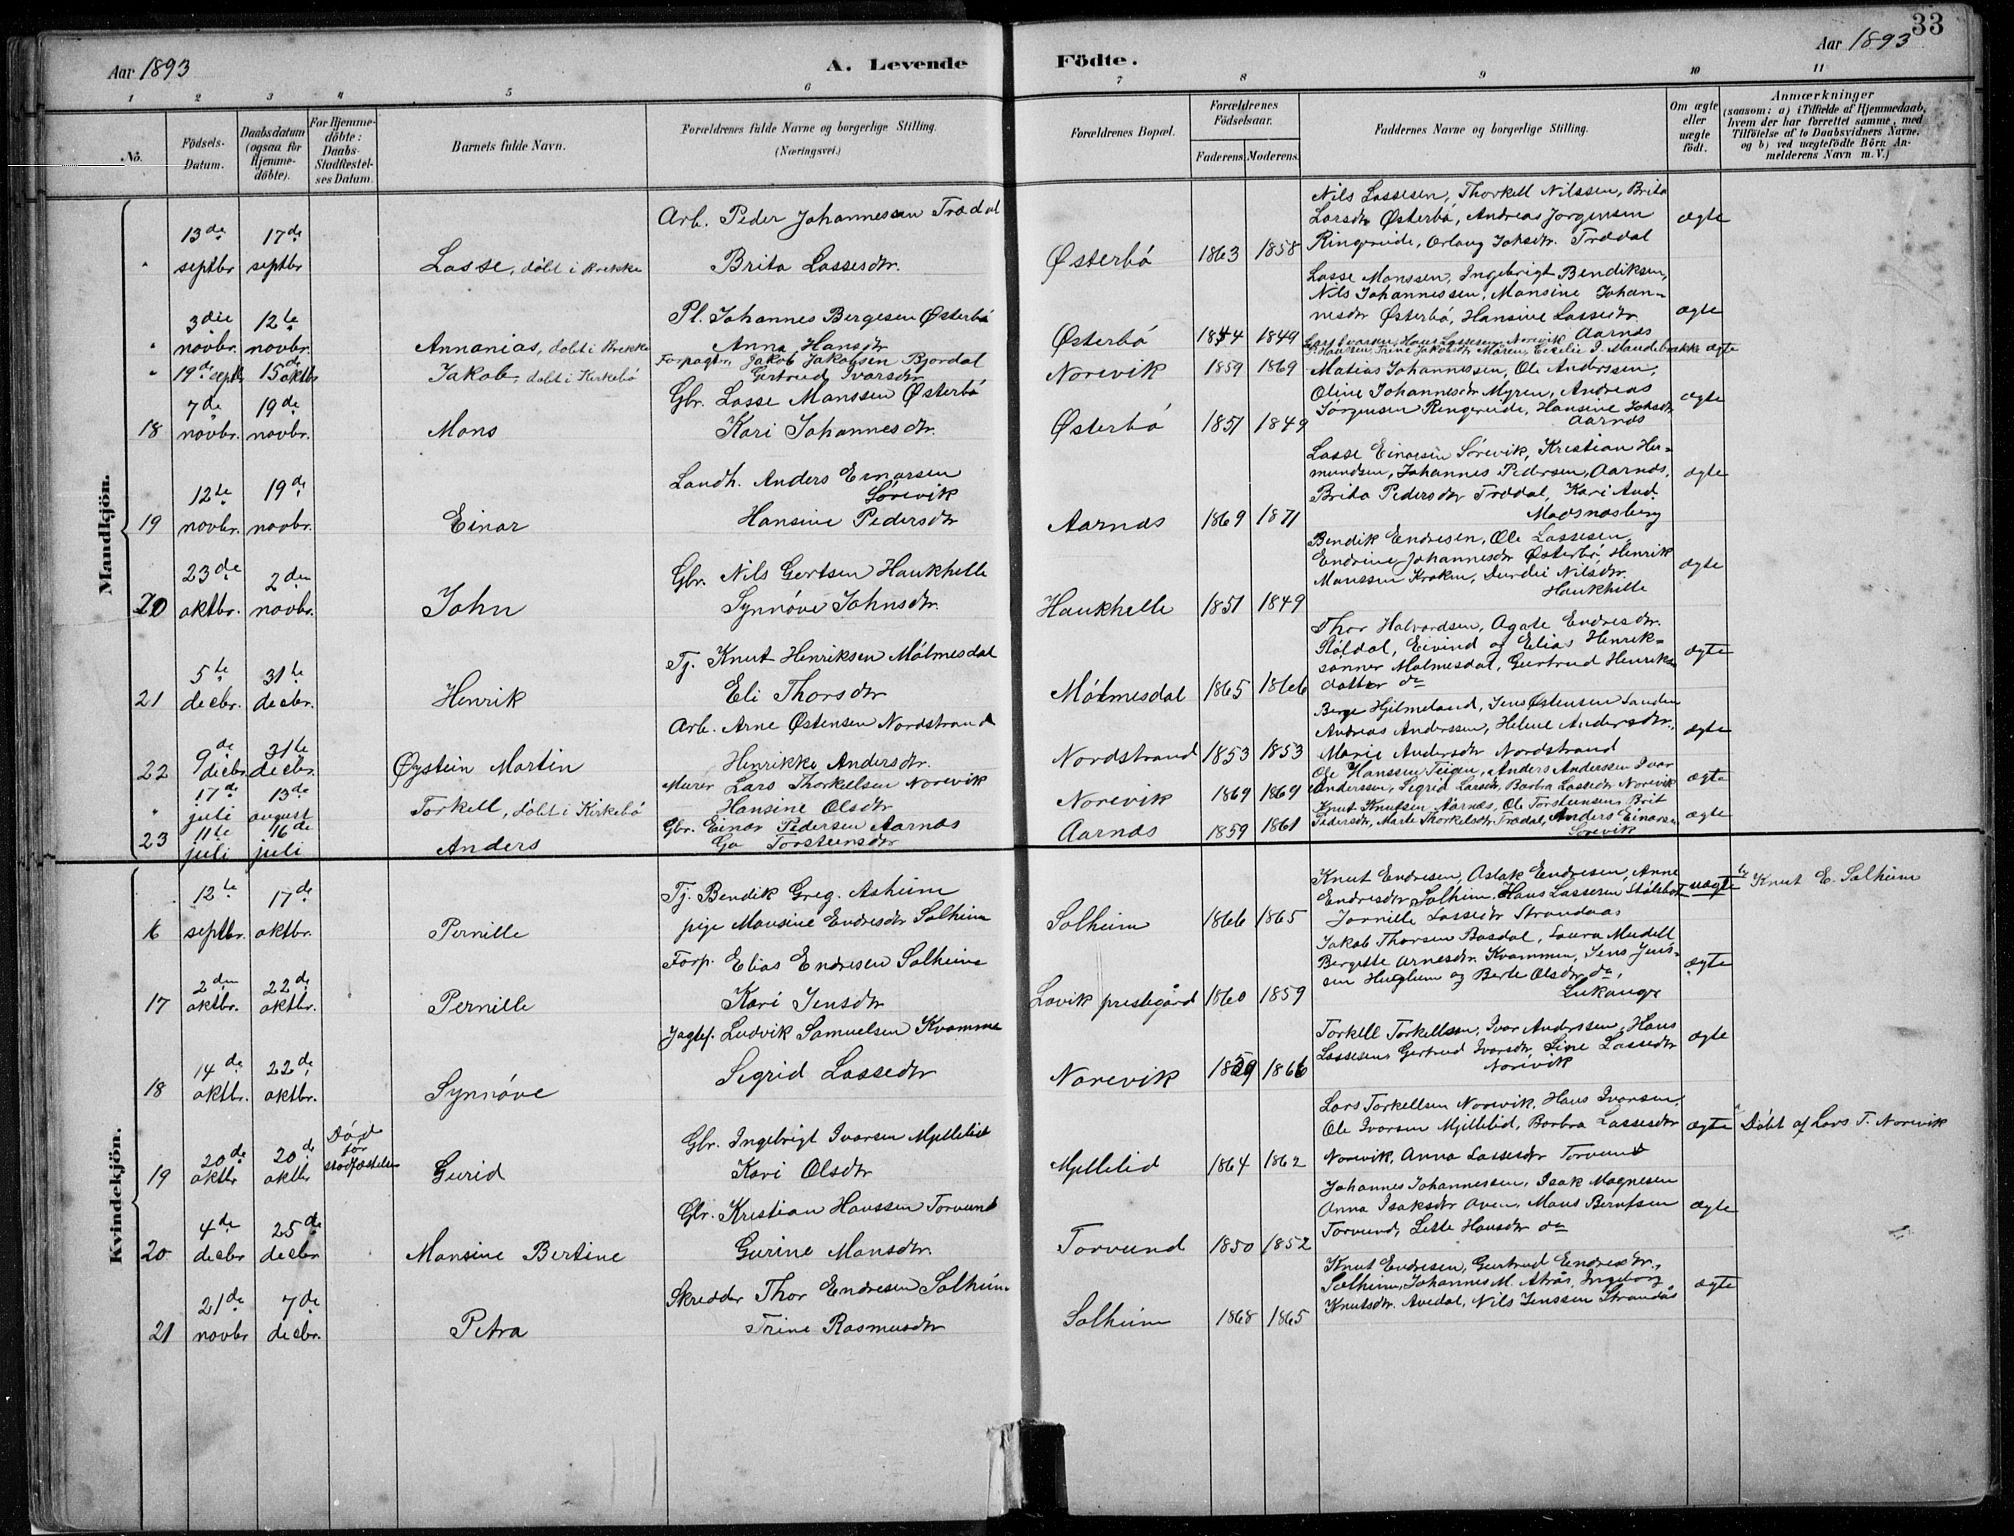 33
Aar 1893
A. Levende Födte.
Aar 1893
1 2 3 4 5 6 7 8 9 10 11
No.
Födsels-Datum.
Daabsdatum (ogsaa for Hjemme-döbte).
For Hjemme-döbte: Daabs-Stadfæstel-ses Datum.
Barnets fulde Navn.
Forældrenes fulde Navne og borgerlige Stilling.
(Næringsvei.)
Forældrenes Bopæl.
Forældrenes Födselsaar.
Faderens. Moderens.
Faddernes Navne og borgerlige Stilling.
Om ægte eller uægte födt.
Anmærkninger
(saasom: a) i Tilfælde af Hjemmedaab, hvem der har forrettet samme, med Tilföielse af to Daabsvidners Navne, og b) ved uægtefödte Börn Anmelderens Navn m. V.)
Mandkjön.
" 13de septbr 17de septbr Lasse, döbt i Brekke Arb. Peder Johannessen Trædal
Brita Lassesdtr. Østerbö 1863 1858
Nils Lassesen, Thorkell Nilssen, Brita
Larsdtr Østerbö, Andreas Jørgensen
Ringereide, Johsdtr. Trædal ægte
" 3die novbr. 12te novbr. Annanias, döbt i Brekke Pl. Johannes Bergesen Østerbö
Anna Hansdtr Østerbö 1844 1849
Lasse Monssen, Ingebrigt Bendiksen,
Nils Johannessen, Mansine Johan-
nesdr Østerbö, Hansine Lassesdtr.
Aarnæs ægte
" 19de septbr 15de oktbr Jakob, döbt i Kirkebö Forpagtr. Jakob Jakobsen Bjordal
Gertrud Ivarsdtr Norevik 1859 1869
Lars Ivarsen, Hans Lassesen Norevik
ægte
18 7de novbr. 19de novbr. Mons Gbr. Lasse Monssen Østerbö
Kari Johannesdtr. Østerbö 1851 1849
Matias Johannessen, Ole Anderssen,
Oline Johannesdtr Myren, Andreas
Jørgensen Ringereide, Hansine Johsdtr
Aarnæs ægte
19 12te novbr. 19de novbr. Einar Landh. Anders Einarsen
Sørevik
Hansine Pedersdtr Aarnæs 1869 1871
Lasse Einarsen Sørevik, Kristian Her-
mundsen, Johannes Pedersen, Aarnæs,
Brita Pedersdtr Trædal, Kari And.
Madsnæsberg ægte
20 23de oktbr. 2den novbr. John Gbr. Nils Gertsen Haukhelle
Synnöve Johnsdtr. Haukhelle 1851 1849
Bendik Endresen, Ole Lassesen,
Endrine Johannesdtr Østerbö Henrik
Monssen Kroken, Durdei Nilsdtr.
Haukhelle ægte
21 5te decbr. 31te decbr. Henrik Tj. Knut Henriksen Mölmesdal
Eli Thorsdtr Mölmesdal 1865 1866
Thor Halvordsen, Agate Endresdtr.
Stöldal, Eivind og Elias Henrik-
sönner Mölmesdal, Gertrud Henriks
datter do ægte
22 9de decbr. 31te decbr. Øystein Martin Arb. Arne Østensen Nordstrand
Henrikke Andersdtr. Nordstrand 1853 1853
Berge Hjelmeland, Jens Østensen Sanden
Andreas Anderssen, Helene Andersdtr.,
Marie Andersdtr Nordstrand ægte
" 17de juli 13de august Torkell, döbt i Kirkebö Murer Lars Thorkellsen Norevik
Hansine Olsdtr Norevik 1869 1869
Ole Hanssen Teigen, Anders Anderssen Ivar
Anderssen, Sigrid Larsdtr, Barbra Lassesdtr Norevik ægte
23 11te juli 16de juli Anders Gbr. Einar Pedersen Aarnæs
Torsteinsdtr Aarnæs 1859 1861
Knut Knutsen Aarnæs, Ole Torsteinsen, Brit
Pedersdtr, Marte Thorkelsdtr Trædal, Anders Einarsen
Sørevik ægte
Kvindekjön.
16 12te septbr. 17de oktbr. Pernille Tj. Bendik Greg. Asheim
pige Mansine Endresdtr Solheim Solheim 1866 1865
Knut Endresen, Aslak Endresen, Anne
Endresdtr Solheim, Hans Lassesen
Jornille Lassesdtr Strandaas uægte Knut E. Solheim
17 2den oktbr. 22de oktbr. Pernille Forp. Elias Endresen Solheim
Kari Jensdtr Lavik prestegård 1860 1859
Jakob Thorsen Bosdal, Laura Mudell
Bergitte Arnesdtr Kvammen, Jens Jens-
sen Huglum og Berte Olsdtr do,
ægte
18 14de oktbr. 22de oktbr. Synnöve Jagtsf. Ludvik Samuelsen Kvamme
Sigrid Lassesdtr Norevik 1859 1866
Torkell Torkellsen, Ivar Anderssen, Hans
Lassesen, Gertrud Ivarsdtr, Sine Lassesdtr
Norevik ægte
19 20de oktbr 20de oktbr Död för stadfæstelsen Gurid Gbr. Ingebrigt Ivarsen Mjellelid
Kari Olsdtr Mjellelid 1864 1862
Lars Torkellsen Norevik, Hans Ivarsen,
Ole Ivarsen Mjellelid, Barbra Lassesdtr
Norevik, Anna Lassesdtr Torvund ægte Döbt af Lars T. Norevik
20 4de decbr 25de decbr Mansine Bertine Gbr. Kristian Hanssen Torvund
Gurine Monsdtr. Torvund 1850 1852
Johannes Johannessen, Isak Magnesen
Anna Isaksdtr Aven, Mons Berntsen
Torvund, Lette Hansdtr do ægte
21 21de novbr 7de decbr. Petra Skredder Thor Endresen Solheim
Trine Rasmusdtr Solheim 1868 1865
Knut Endresen, Gertrud Endresdtr.,
Solheim, Johannes M. Aträs, Ingeborg
Knutsdtr. Avedal, Nils Jenssen Strandås ægte